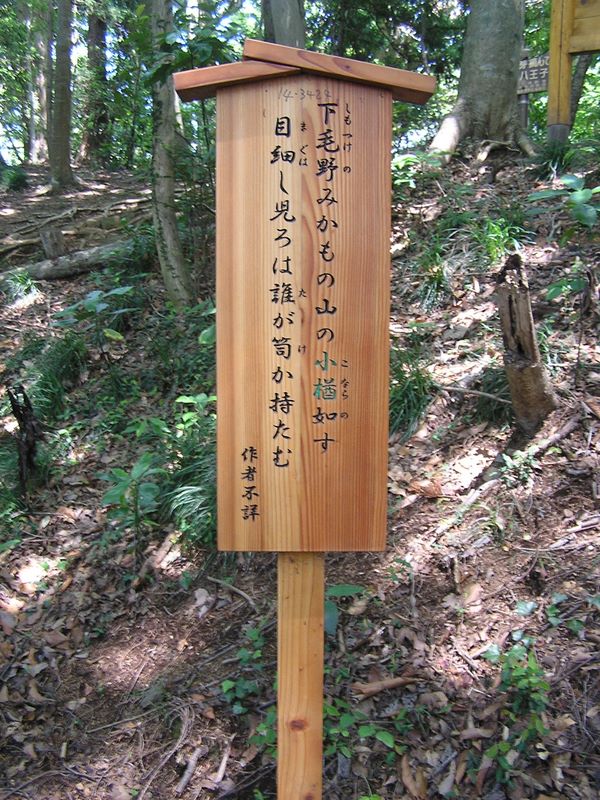 14-3424
下毛野みかもの山の小楢如す
しもつけの
こならの
目細し児ろは誰が笥か持たむ
まぐは
たけ
作者不詳
八王子